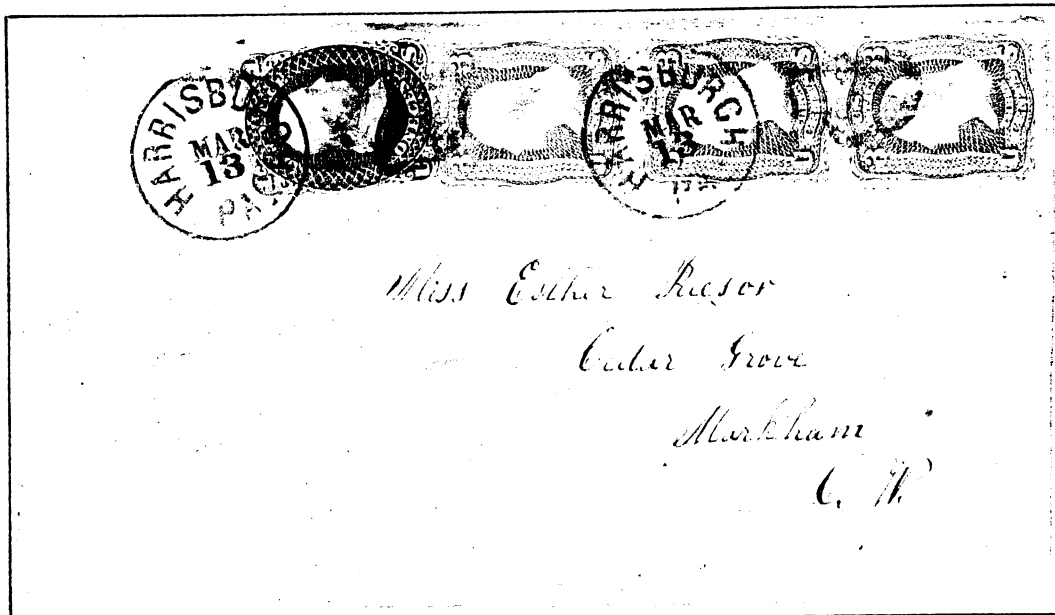 HARRISBU
MAR
13
PA
HARRISBURGH
MAR
13
PA
Miss Esther Reesor
Cedar Grove
Markham
C. W.